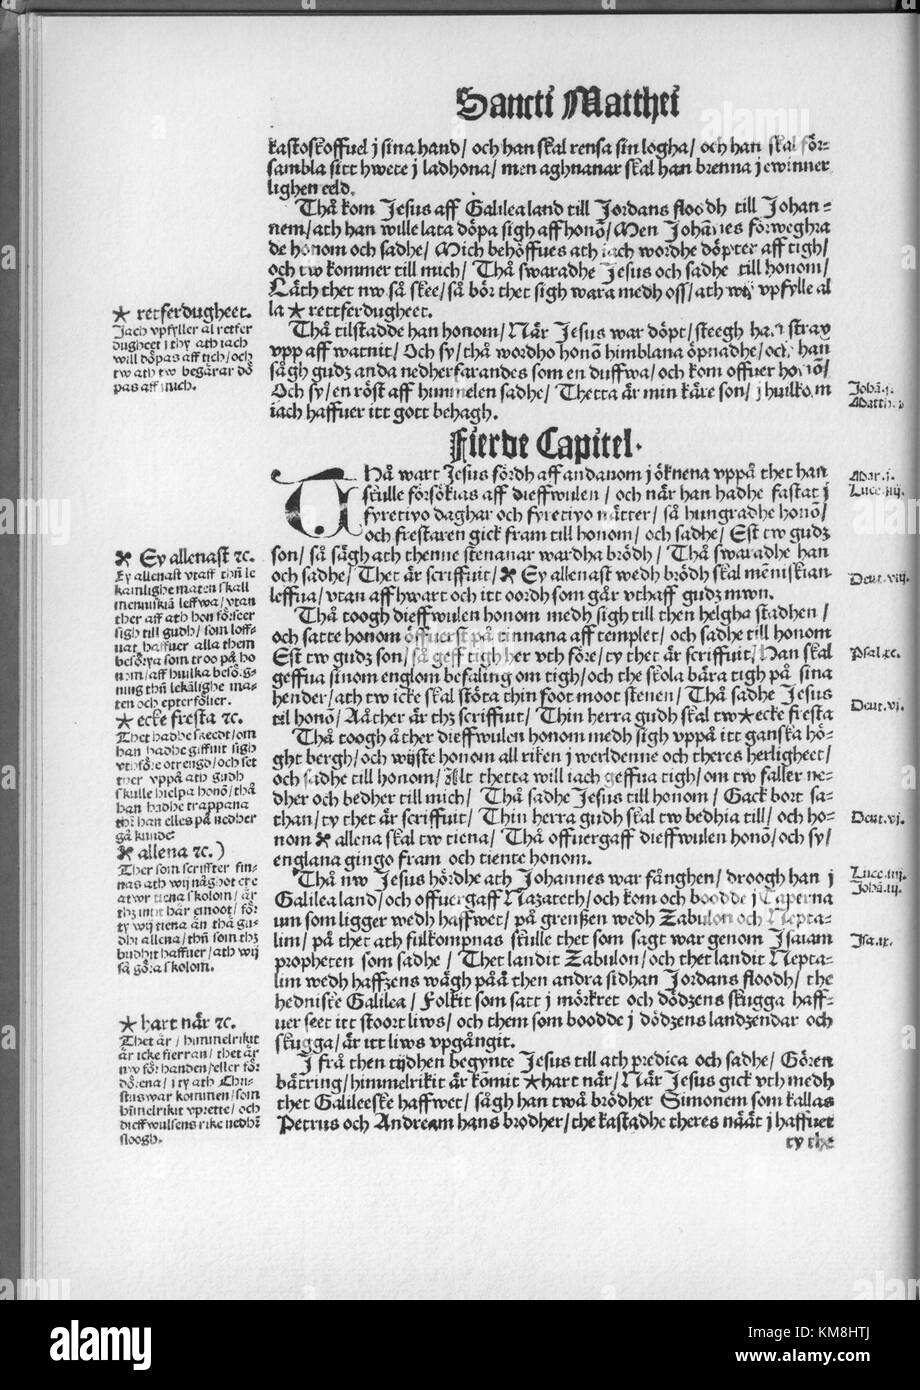 Sancti Matthei
kastoskoffuel j sina hand/ och han skal rensa sin logha/ och han skal för-
sambla sitt hwete j ladhona/ men aghnanar skal han brenna j ewinner
lighen eeld.
Thå kom Jesus aff Galilea land till Jordans floodh till Johan-
nem/ ath han wille lata döpa sigh aff honõ/ Men Johãnes förweghra
de honom och sadhe/ Mich behöffues ath iach wordhe döpter aff tigh/
och tw kommer till mich/ Thå swaradhe Jesus och sadhe till honom/
Låth thet nw så skee/ så bör thet sigh wara medh oss/ ath wij vpfylle al
la ★ rettferdugheet.
Thå tilstadde han honom/ När Jesus war döpt/ steegh han strax
vpp aff watnit/ Och sy/ thå wordho honõ himblana öpnadhe/ och han
sågh gudz anda nedherfarandes som en duffwa/ och kom offuer honõ/
Och sy/ en röst aff himmelen sadhe/ Thetta är min käre son/ j huilkom
iach haffuer itt gott behagh.
★ retferdugheet.
Jach vpfyller al retfer
dugheet i thy ath iach
will döpas aff tich/ och
tw ath tw begärar dö
pas aff mich.
Johã.j.
Fierde Capitel.
Thå wart Jesus fördh aff andanom j öknena vppå thet han
skulle försökias aff dieffwulen/ och när han hadhe fastat j
fyretiyo daghar och fyretiyo nätter/ så hungradhe honõ/
och frestaren gick fram till honom/ och sadhe/ Est tw gudz
son/ så sägh ath thenne stenanar wardha brödh/ Thå swaradhe han
och sadhe/ Thet är scriffuit/ ✠ Ey allenast wedh brödh skal menniskian
leffua/ vtan aff hwart och itt oordh som går vthaff gudz mwn.
Thå toogh dieffwulen honom medh sigh till then helgha stadhen/
och satte honom öffuerst på tinnana aff templet/ och sadhe till honom
Est tw gudz son/ så geff tigh her vth före/ ty thet är scriffuit/ Han skal
geffua sinom englom befaling om tigh/ och the skola bära tigh på sina
hender/ ath tw icke skal stöta thin foot moot stenen/ Thå sadhe Jesus
til honõ/ Aåther är thz scriffuit/ Thin herra gudh skal tw ★ ecke fresta
Thå toogh åther dieffwulen honom medh sigh vppå itt ganska hö-
ght bergh/ och wijste honom all riken j werldenne och theres herligheet/
och sadhe till honom/ Alt thetta will iach geffua tigh/ om tw faller ne-
dher och bedher till mich/ Thå sadhe Jesus till honom/ Gack bort sa-
than/ ty thet är scriffuit/ Thin herra gudh skal tw bedhia till/ och ho-
nom ✠ allena skal tw tiena/ Thå offuergaff dieffwulen honõ/ och sy/
englana gingo fram och tiente honom.
Thå nw Jesus hördhe ath Johannes war fånghen/ droogh han j
Galilea land/ och offuergaff Nazareth/ och kom och boodde j Caperna
um som ligger wedh haffwet/ på grenßen wedh Zabulon och Nepta-
lim/ på thet ath fulkompnas skulle thet som sagt war genom Isaiam
propheten som sadhe/ Thet landit Zabulon/ och thet landit Nepta-
lim wedh haffzens wägh påå then andra sidhan Jordans floodh/ the
hedniske Galilea/ Folkit som satt j mörkret och dödzens skugga haff-
uer seet itt stoort liws/ och them som boodde j dödzens landzendar och
skugga/ är itt liws vpgångit.
J frå then tijdhen begynte Jesus till ath predica och sadhe/ Gören
bätring/ himmelrikit är kõmit ★ hart när/ När Jesus gick vth medh
thet Galileeske haffwet/ sågh han twå brödher Simonem som kallas
Petrus och Andream hans brodher/ the kastadhe theres näät j haffuet
ty the
✠ Ey allenast ꝛc.
Ey allenast vtaff thñ le
kamlighe maten skall
menniskiã leffwa/ vtan
ther aff ath hon förseer
sigh till gudh/ som loff-
uat haffuer alla them
besörya som troo på ho
nom/ aff huilka besörg-
ning thñ lekãlighe ma-
ten och epterfölier.
★ ecke fresta ꝛc.
Thet hadhe skeedt/ om
han hadhe giffuit sigh
vthföre otrengd/ och set
ther vppå ath gudh
skulle hielpa honõ/ thå
han hadhe trappana
thr̃ han elles på nedher
gå kunde
✠ allena ꝛc.)
Ther som scriffter fin-
nas ath wij någhot cre
atwr tiena skolom/ är
thz intit här emoot/ för
ty wij tiena än thå gu-
dhi allena/ thñ som thz
budhit haffuer/ ath wij
så göra skolom.
★ hart när ꝛc.
Thet är/ himmelrikit
är icke fierran/ thet är
nw för handen/ eller för
dörena/ i ty ath Chri-
stus war kommen/ som
himelrikit vprette/ och
dieffwulsens rike nedhr̃
sloogh.
Mar.j.
Luce.iiij.
Deut.viij.
Psal.xc.
Deut.vj.
Deut.vj.
Luce.iiij.
Johã.iiij.
Isa.ix.
alamy
Image ID: KM8HTJ
www.alamy.com